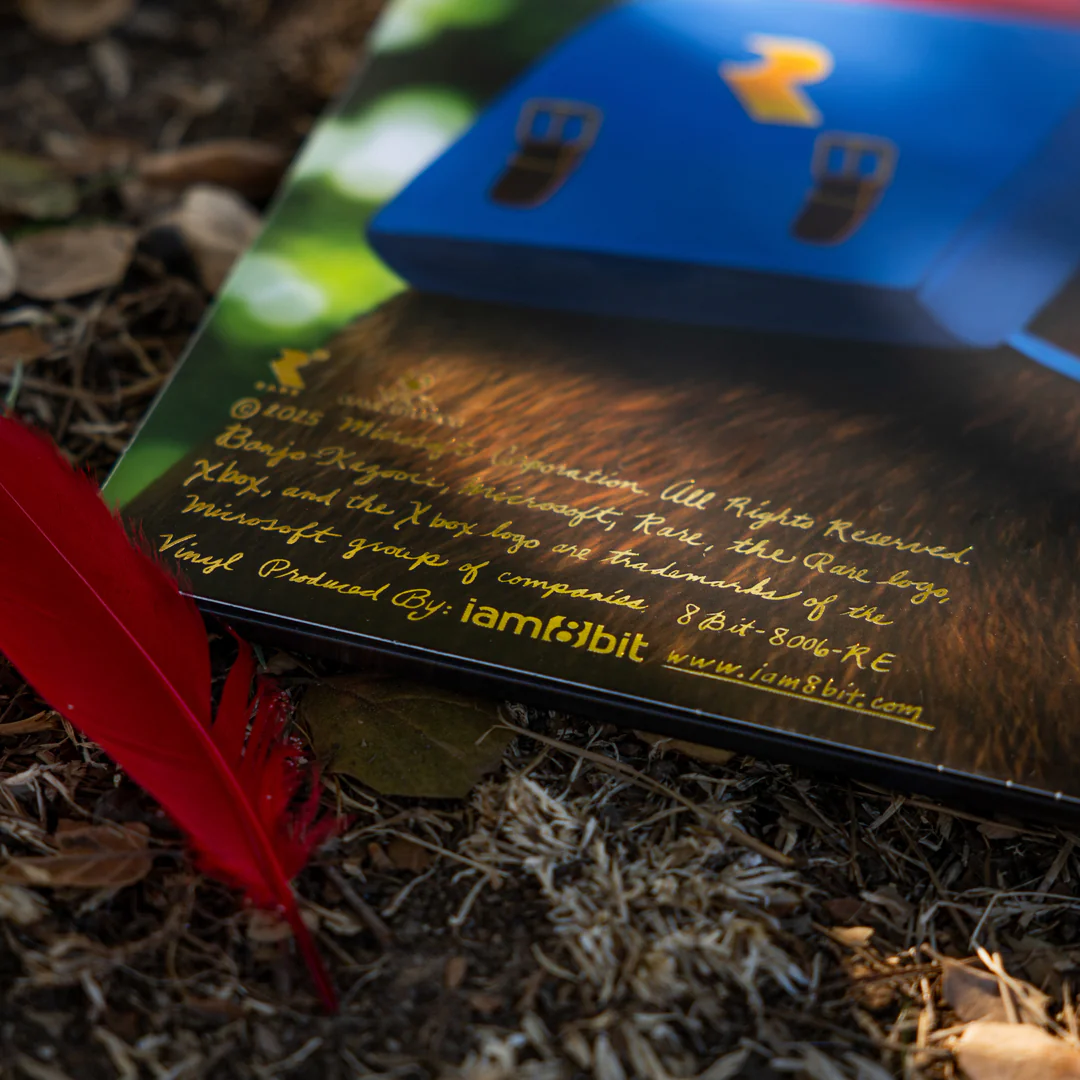 © 2025 Microsoft Corporation All Rights Reserved.
Banjo-Kazooie, Microsoft, Rare, the Rare logo,
Xbox, and the Xbox logo are trademarks of the
Microsoft group of companies 8Bit-8006-RE
Vinyl Produced By: iam8bit www.iam8bit.com